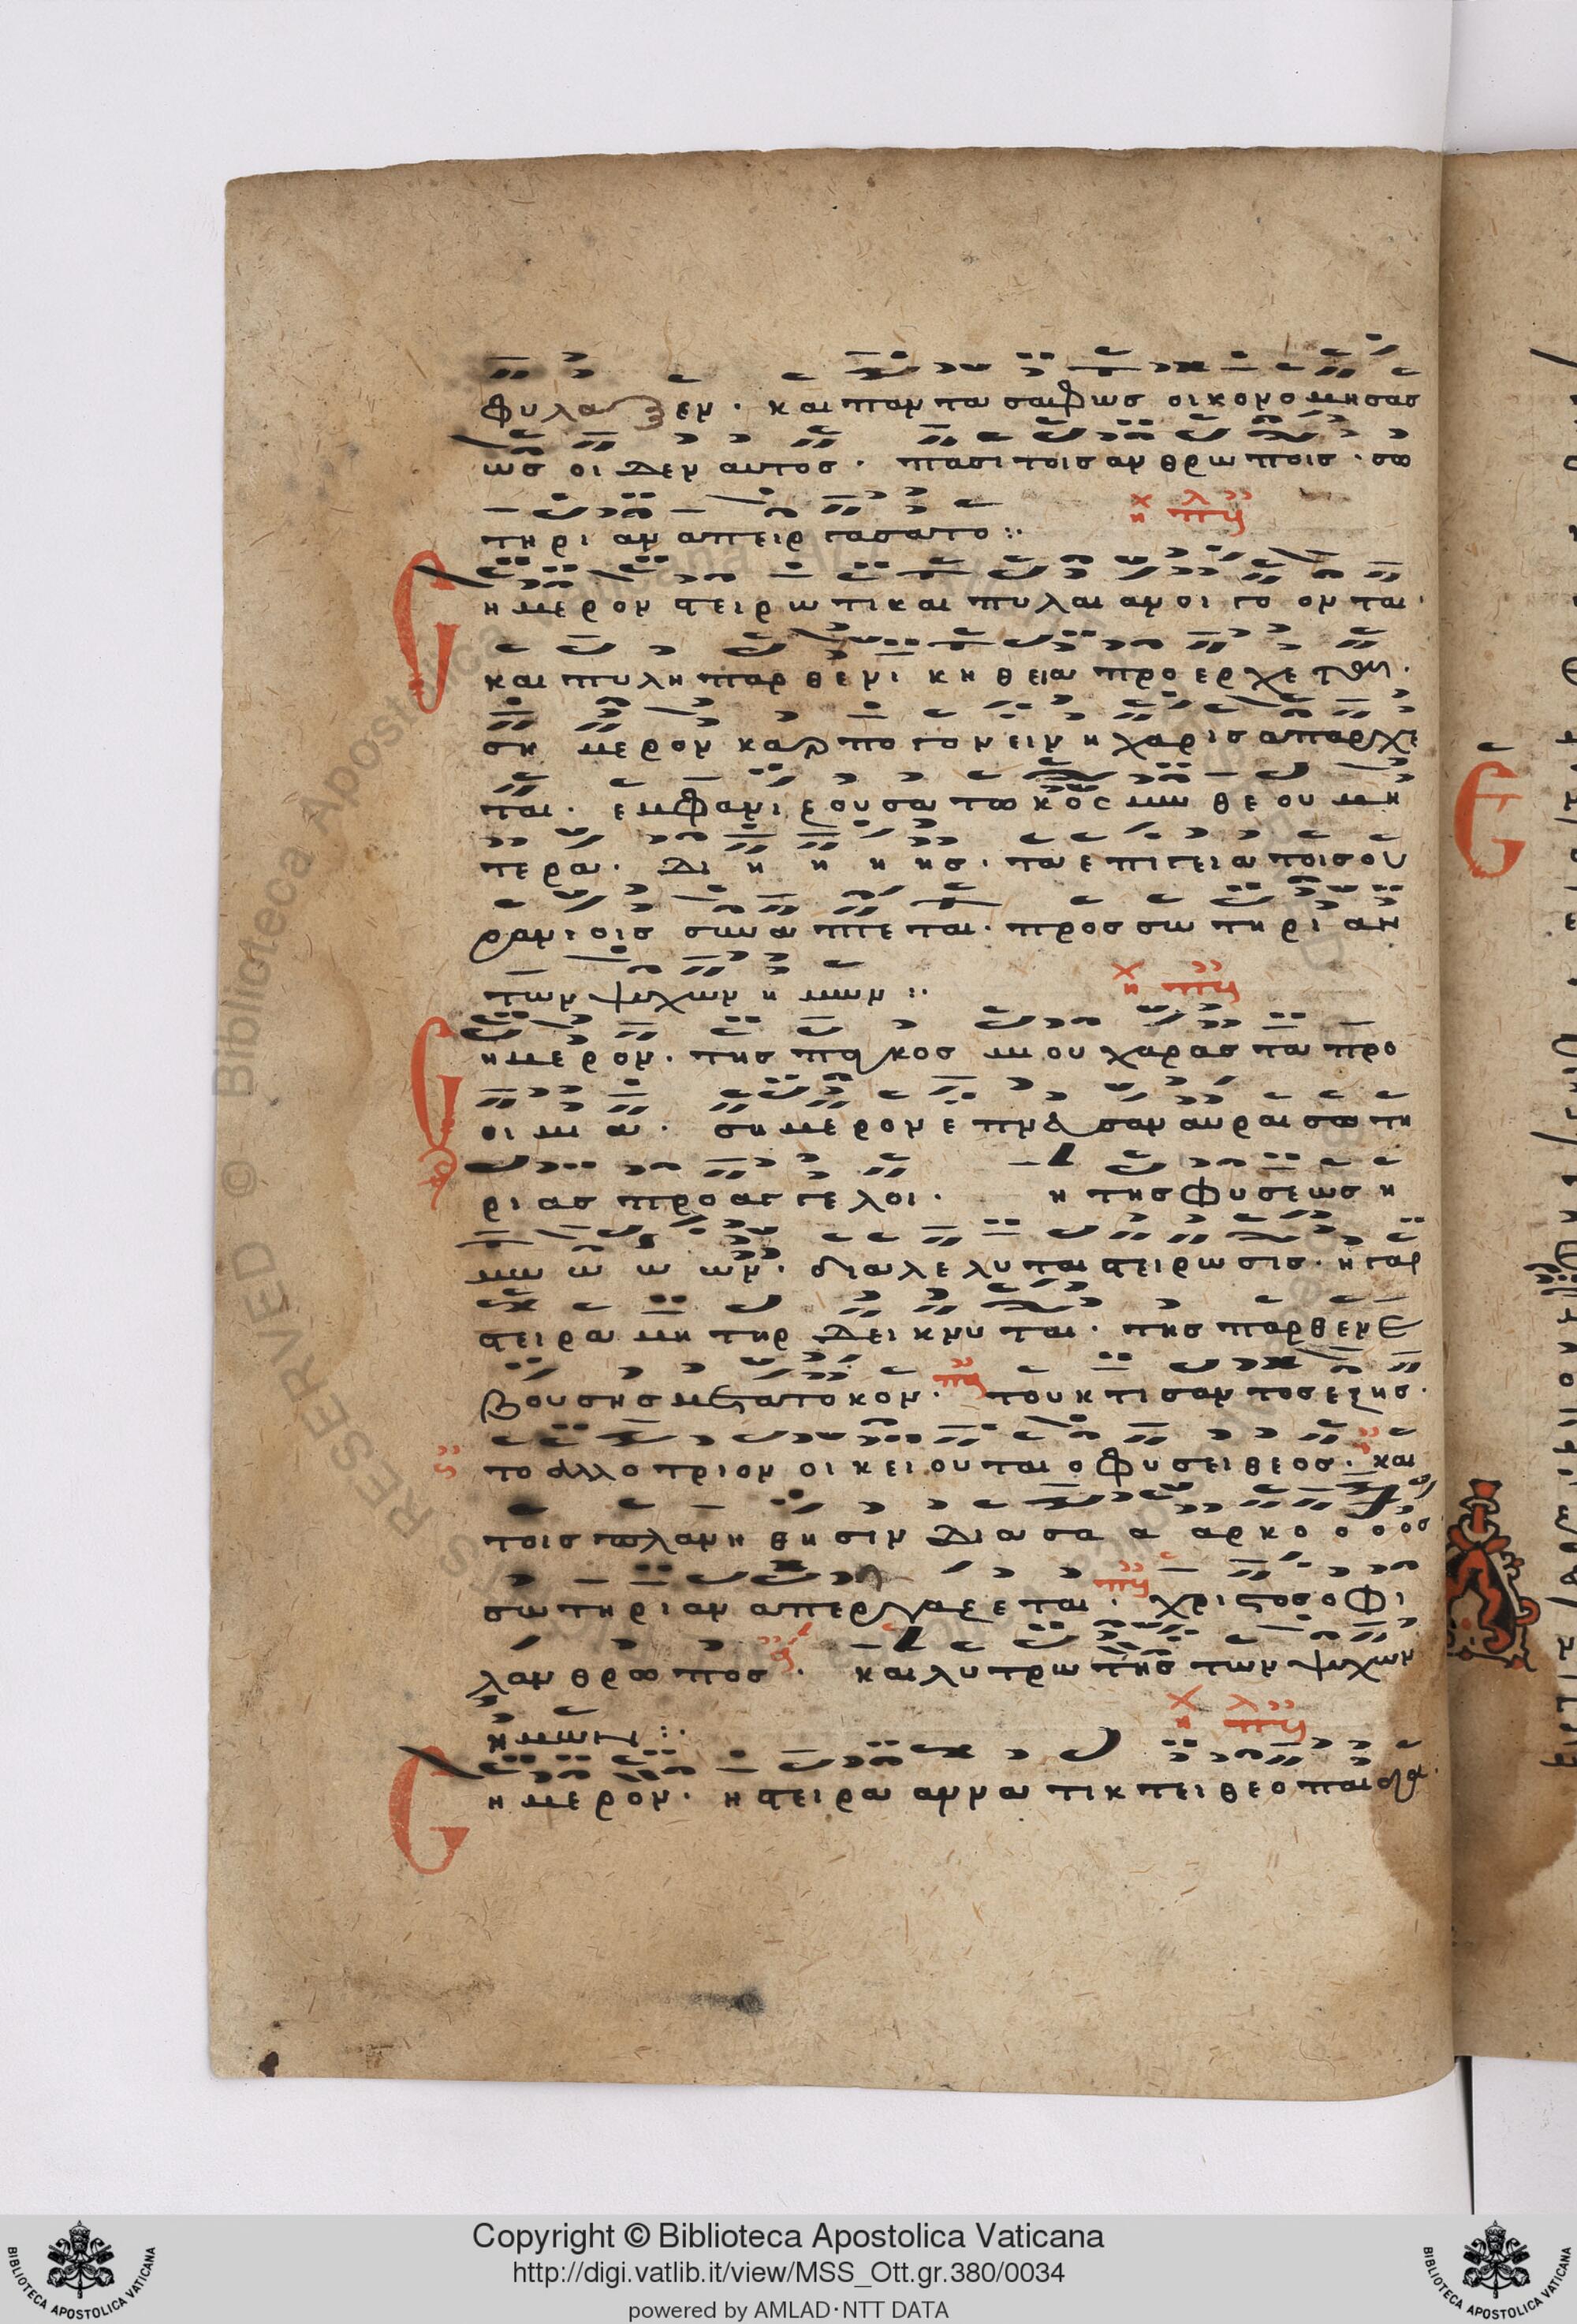 φυλαξεν · και παντα σαφως οικονομησας
ως οιδεν αυτος · πασι τοις ανθρωποις · σω
τηριαν απειργασατο :·
χ η λ πλ
Σημερον στειρωτικαι πυλαι ανοιγοονται ·
και πυλη παρθενικη θεια προερχεται ·
σημερον καρπογονειν η χαρις απαρχε
ται · εμφανιζουσα τω κοσμω θεου μη
τερα · δι η η η ης · τα επιγεια τοις ου
ρανιοις συναπτεται · προς σωτηριαν
των ψυχων ημων :·
χ η πλ
Σημερον · της παγκοσμιου χαρας τα προ
οιμια · σημερον επνευσαν αυραι σωτη
ριας προαγγελοι · η της φυσεως η
μω ω ω ων · διαλελυται στειρωσις · η γαρ
στειρα μητηρ δεικνυται · της παρθενε
βουσης μετα τοκον · του κτισαντος εξ ης ·
το αλλοτριον οικειουται ο φυσει θεος · και
τοις πλανηθησιν δια σα α αρκο ο ο ος
σωτηριαν απεργαζεται · χριστος ο φι
λανθρωπος · και λυτρωτης των ψυχων
ημων :·
χ η λ πλ
Σημερον · η στειρα αννα τικτει θεοπαιδα ·
Copyright © Biblioteca Apostolica Vaticana
http://digi.vatlib.it/view/MSS_Ott.gr.380/0034
powered by AMLAD·NTT DATA